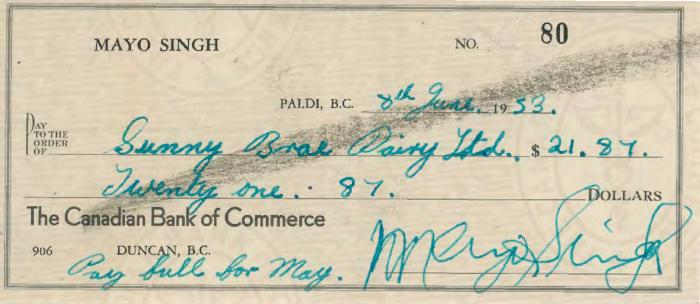 MAYO SINGH NO. 80
PALDI, B.C. 8th June, 1953.
PAY TO THE ORDER OF Sunny Brae Dairy Ltd., $ 21.87.
Twenty one . 87. DOLLARS
The Canadian Bank of Commerce
906 DUNCAN, B.C.
Pay bull for May. Mayo Singh